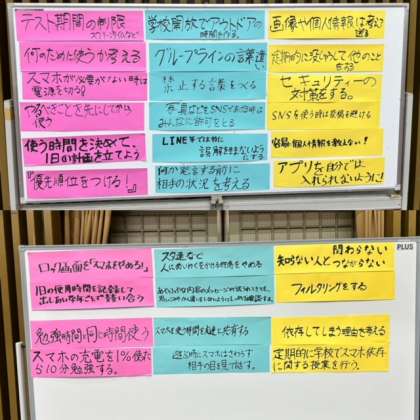 テスト期間の制限
学校開放でアウトドアの
時間を作る。
画像や個人情報は考えて
送る
何のために使うか考える
グループラインの言葉遣い
定期的に没しゅうして他のこと
をする
スマホが必要がない時は
電源を切る!
禁止する言葉をつくる
セキュリティーの
対策をする。
やるべきことを先にしてから
使う
写真などをSNSにあげる時は
みんなに許可をとる
SNSを使う時は投稿を避ける
使う時間を決めて、
1日の計画を立てよう
LINE等では特に
誤解をまねかないよう
にする
個人情報を教えない!
『優先順位をつける!』
何か発言する前に
相手の状況を考える
アプリを自分では
入れられないように!
PLUS
ロック画面を「スマホをやめる!」
スタ連など
人にめいわくをかける行為をやめる
関わらない
知らない人と つながらない
1日の使用時間を記録して
フィルタリングをする
勉強時間と同じ時間使う
スマホを使う時間を友達と共有する
依存してしまう理由を考える
スマホの充電を1%使たら
10分勉強する。
遊ぶ時にスマホはさわらず
相手の目を見て話す。
定期的に学校でスマホ依存
に関する授業を行う。